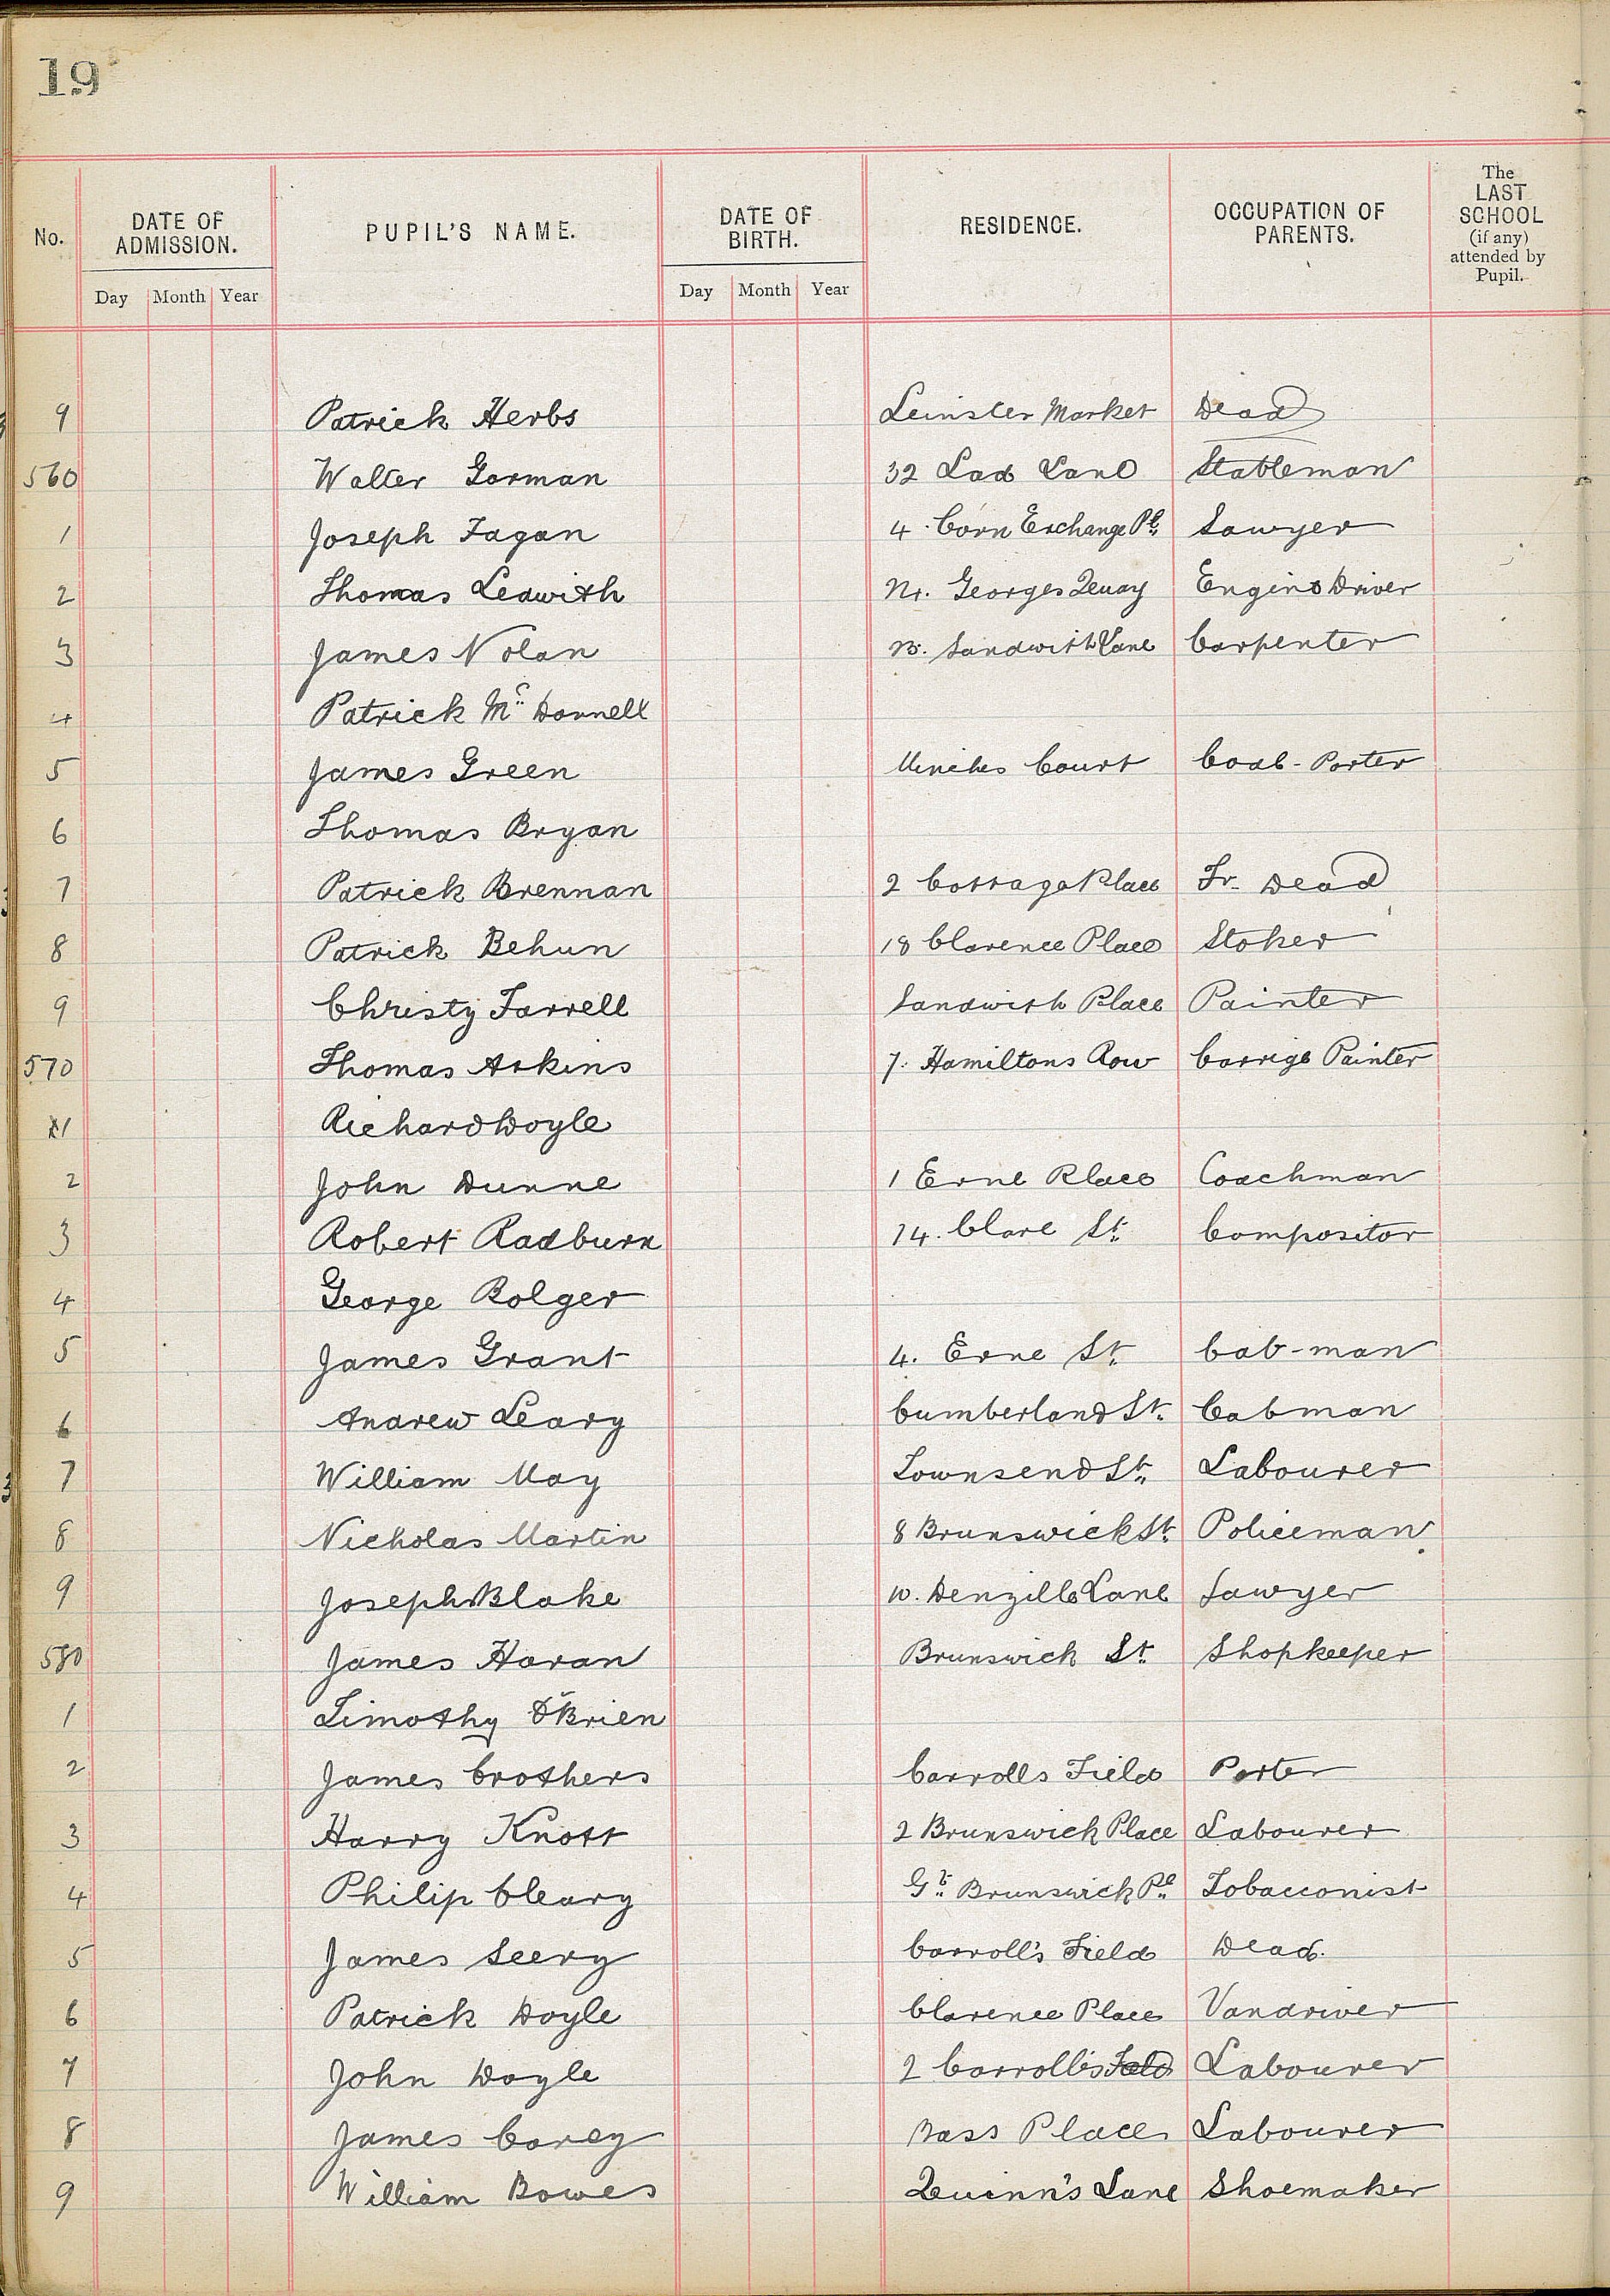 19
No. DATE OF ADMISSION. PUPIL'S NAME. DATE OF BIRTH. RESIDENCE. OCCUPATION OF PARENTS. The LAST SCHOOL (if any) attended by Pupil.
Day Month Year Day Month Year
9 Patrick Herbs Leinster Market Dead
560 Walter Gorman 32 Lad Lane Stableman
1 Joseph Fagan 4. Corn Exchange Pl. Sawyer
2 Thomas Ledwith Georges Quay Engine Driver
3 James Nolan Sandwith Lane Carpenter
4 Patrick Mc Donnell
5 James Green Court Coal-Porter
6 Thomas Bryan
7 Patrick Brennan 2 Cottage Place Fr. Dead
8 Patrick Behun 18 Clarence Place Stoker
9 Christy Farrell Sandwith Place Painter
570 Thomas Atkins 7. Hamiltons Row Carrige Painter
1 Richard Doyle
2 John Dunne 1 Erne Place Coachman
3 Robert Radburn 14. Clare St. Compositor
4 George Bolger
5 James Grant 4. Erne St. Cab-man
6 Andrew Leary Cumberland St. Cabman
7 William May Townsend St. Labourer
8 Nicholas Martin 8 Brunswick St. Policeman
9 Joseph Blake 10. Denzille Lane Sawyer
580 James Haran Brunswick St. Shopkeeper
1 Timothy O'Brien
2 James Crothers Carrolls Field Porter
3 Harry Knott 2 Brunswick Place Labourer
4 Philip Cleary Gt. Brunswick Pl. Tobacconist
5 James Seery Carroll's Field Dead.
6 Patrick Doyle Clarence Place Vandriver
7 John Doyle 2 Carroll's Field Labourer
8 James Carey Bass Place Labourer
9 William Bowes Quinn's Lane Shoemaker